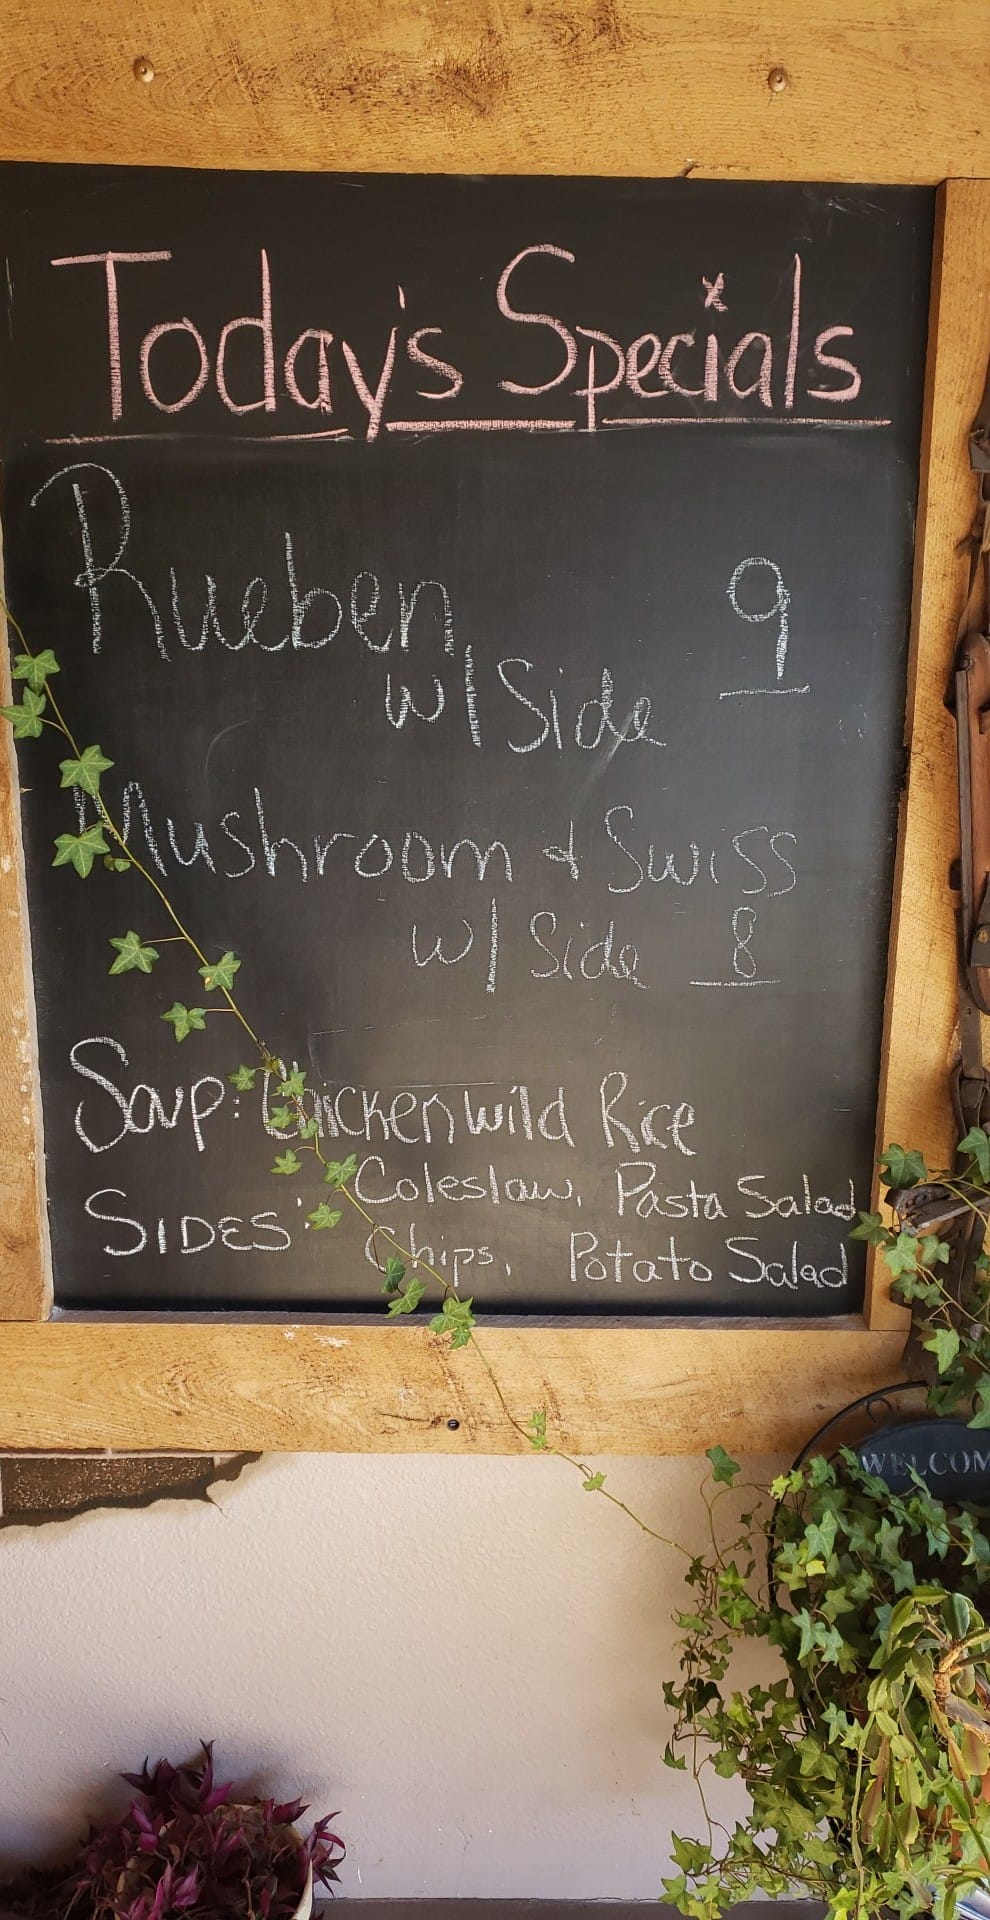 Today's Specials
Rueben 9
w/ Side
Mushroom & Swiss
w/ Side 8
Soup: Chicken Wild Rice
SIDES: Coleslaw, Pasta Salad
Chips, Potato Salad
WELCOM